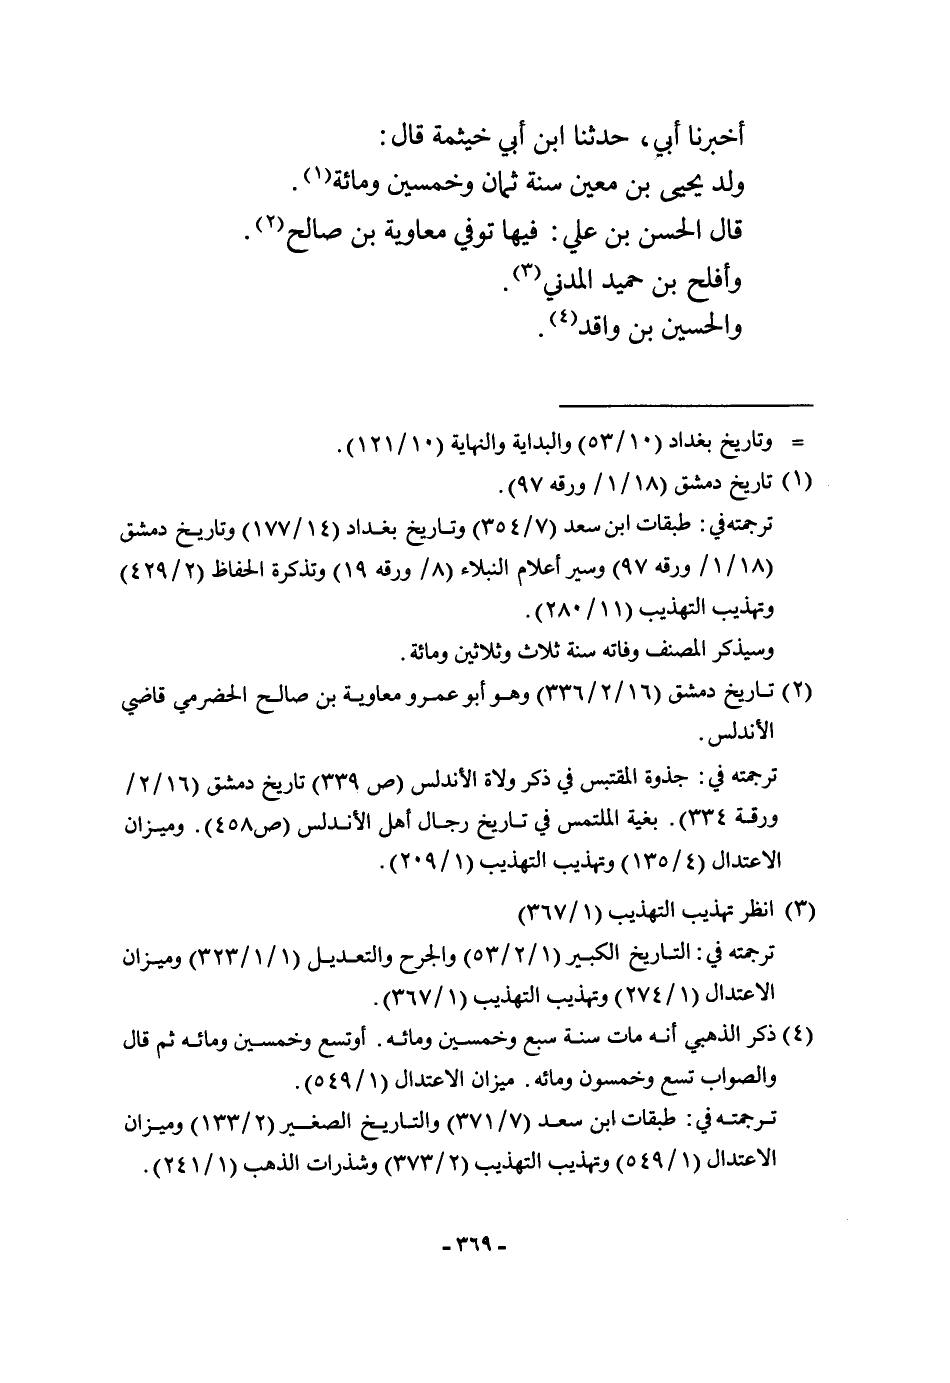 أخبرنا أبي، حدثنا ابن أبي خيثمة قال:
ولد يحيى بن معين سنة ثمان وخمسين ومائة(١).
قال الحسن بن علي: فيها توفي معاوية بن صالح(٢).
وأفلح بن حميد المدني(٣).
والحسين بن واقد(٤).
= وتاريخ بغداد (٥٣/١٠) والبداية والنهاية (١٢١/١٠).
(١) تاريخ دمشق (١/١٨/ ورقه ٩٧).
ترجمته في: طبقات ابن سعد (٣٥٤/٧) وتاريخ بغداد (١٧٧/١٤) وتاريخ دمشق
(١/١٨/ ورقه ٩٧) وسير أعلام النبلاء (٨/ ورقه ١٩) وتذكرة الحفاظ (٤٢٩/٢)
وتهذيب التهذيب (٢٨٠/١١).
وسيذكر المصنف وفاته سنة ثلاث وثلاثين ومائة.
(٢) تاريخ دمشق (٣٣٦/٢/١٦) وهو أبو عمرو معاوية بن صالح الحضرمي قاضي
الأندلس.
ترجمته في: جذوة المقتبس في ذكر ولاة الأندلس (ص ٣٣٩) تاريخ دمشق (٢/١٦/
ورقة ٣٣٤). بغية الملتمس في تاريخ رجال أهل الأندلس (ص٤٥٨). وميزان
الاعتدال (١٣٥/٤) وتهذيب التهذيب (٢٠٩/١).
(٣) انظر تهذيب التهذيب (٣٦٧/١)
ترجمته في: التاريخ الكبير (٥٣/٢/١) والجرح والتعديل (٣٢٣/١/١) وميزان
الاعتدال (٢٧٤/١) وتهذيب التهذيب (٣٦٧/١).
(٤) ذكر الذهبي أنه مات سنة سبع وخمسين ومائه. أوتسع وخمسين ومائه ثم قال
والصواب تسع وخمسون ومائه. ميزان الاعتدال (٥٤٩/١).
ترجمته في: طبقات ابن سعد (٣٧١/٧) والتاريخ الصغير (١٣٣/٢) وميزان
الاعتدال (٥٤٩/١) وتهذيب التهذيب (٣٧٣/٢) وشذرات الذهب (٢٤١/١).
- ٣٦٩ -